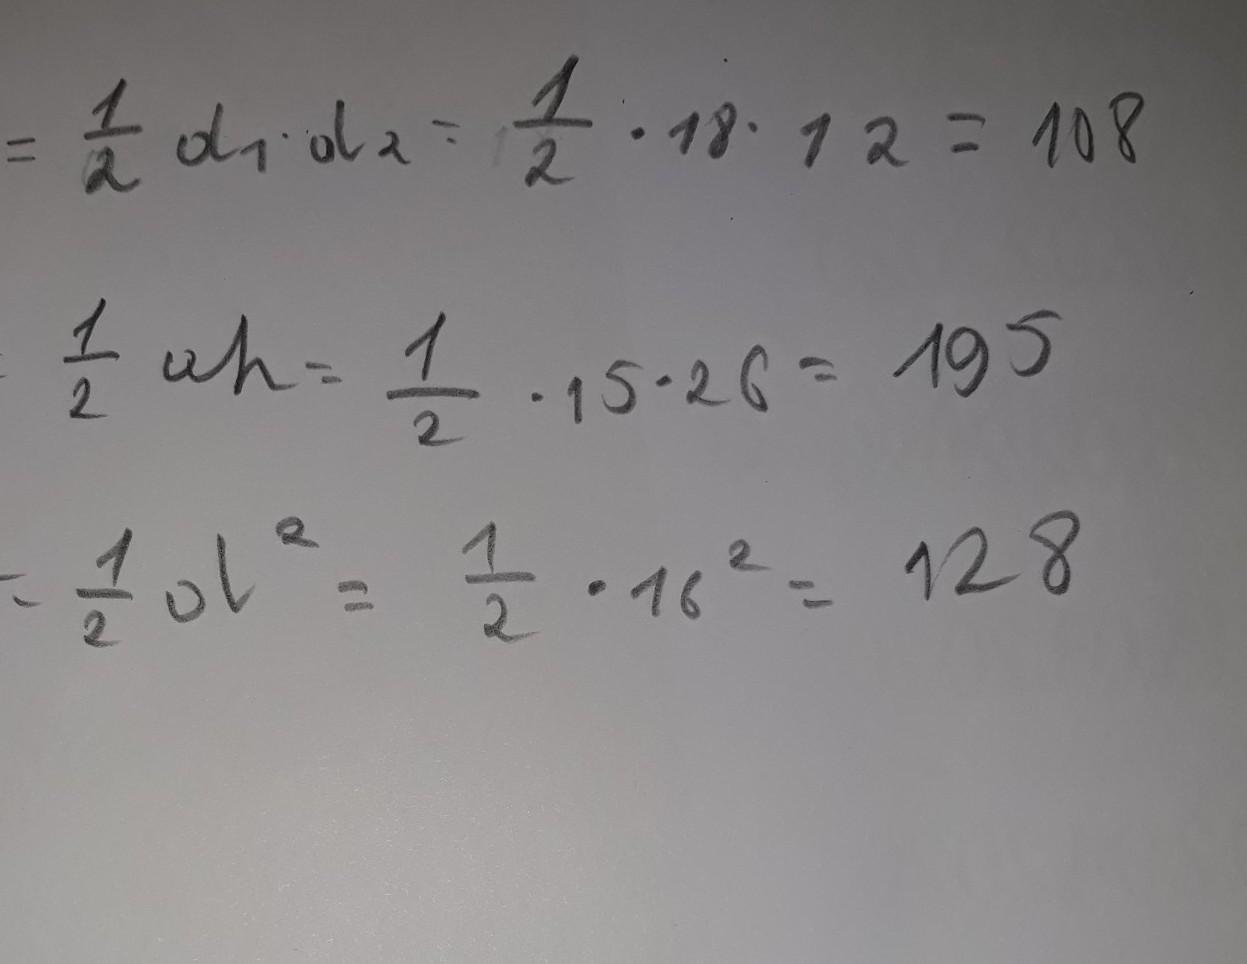 = 1/2 d₁·d₂ = 1/2 · 18 · 12 = 108
= 1/2 ah = 1/2 · 15 · 26 = 195
= 1/2 d² = 1/2 · 16² = 128